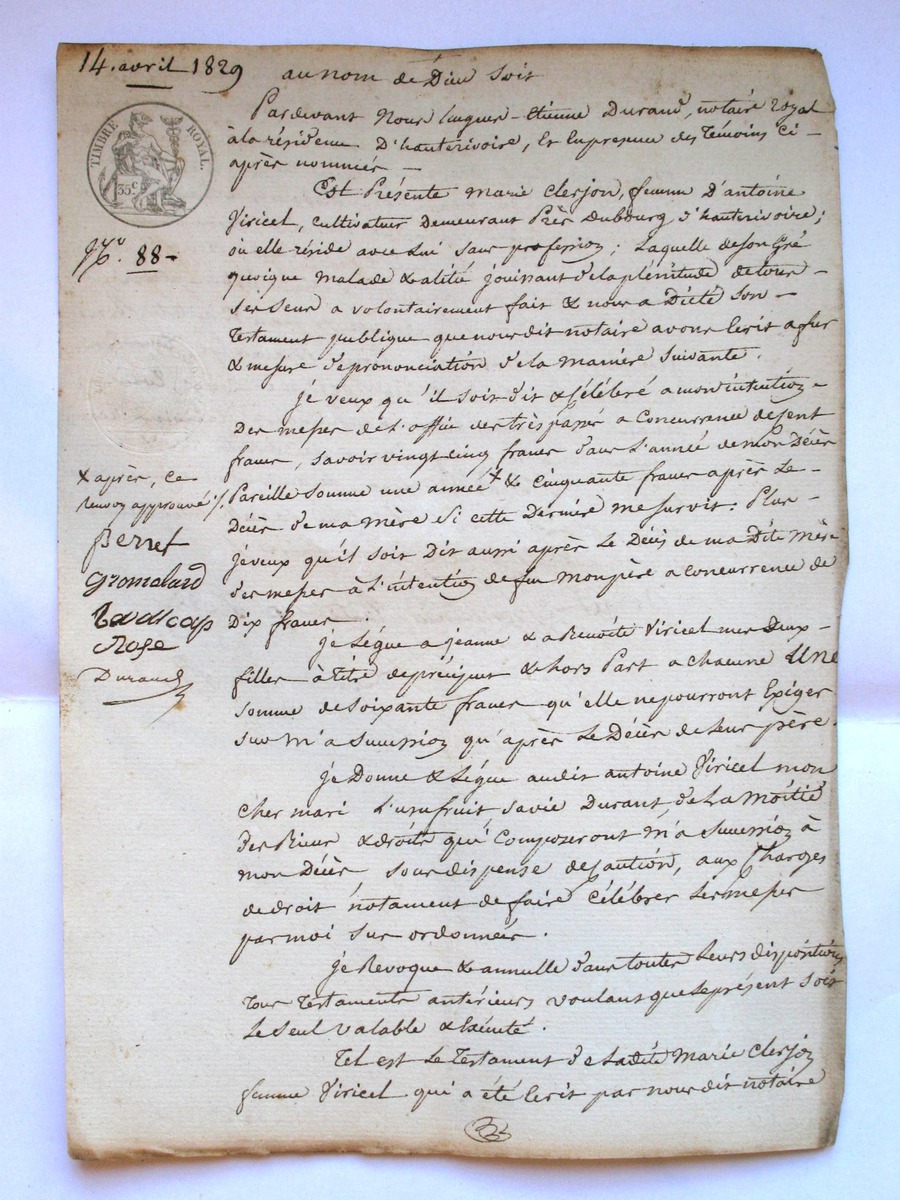 14. avril 1829
au nom de Dieu soit
TIMBRE ROYAL.
35 c.
N.º 88 -
Pardevant Nous hugues-Etienne Durand, notaire Royal
à la résidence D'hauterivoire, Et En presence des Témoins Ci-
après nommés -
Est Présente marie Clerjon, femme D'antoine
Viricel, cultivateur Demeurant Près Dubourg d'hauterivoire;
où elle réside avec Lui sans profession; Laquelle de son gré
quoique malade & alitée jouissant de la plénitude de tous -
Ses Sens a volontairement fait & nous a Dicté son -
Testament publique que nous dit notaire avons Ecrit a fur
& mesure de prononciation de la manière suivante.
je veux qu'il soit dit & célébré a mon intention -
Des messes de L'office des trèspassé a Concurrence de sent
francs, savoir vingt cinq francs dans L'année de mon Décès
Pareille somme une année x & cinquante francs après Le -
Décès de ma mère si cette Dernière me survit. Plus -
je veux qu'il soit Dit aussi après Le Décès de ma Dite mère
des messes à L'intention de feu mon père a concurrence de
Dix francs.
x après, Ce
renvoy approuvé /.
Berret
Gromolard
Rose
Durand
je Légue a jeanne & a Benoîte Viricel mes Deux -
filles à titre de préciput & hors Part a chacune Une
somme de soixante francs qu'elle ne pourront Exiger
sur m'a succession qu'après Le Décès de Leur père.
je Donne & Légue audit antoine Viricel mon
cher mari L'usufruit, sa vie Durant, de La moitié
des Biens & droits qui Composeront m'a succession à
mon Décès sous dispense de Caution, aux Charges
de droit notament de faire Célébrer Les messes
par moi sus ordonnées.
je Revoque & annulle dans toutes Leurs dispositions
Tous Testaments antérieurs voulant que Le présent soit
Le seul valable & Exécuté.
Tel est Le Testament de Ladite Marie Clerjon
femme Viricel qui a été Ecrit par nous dit notaire